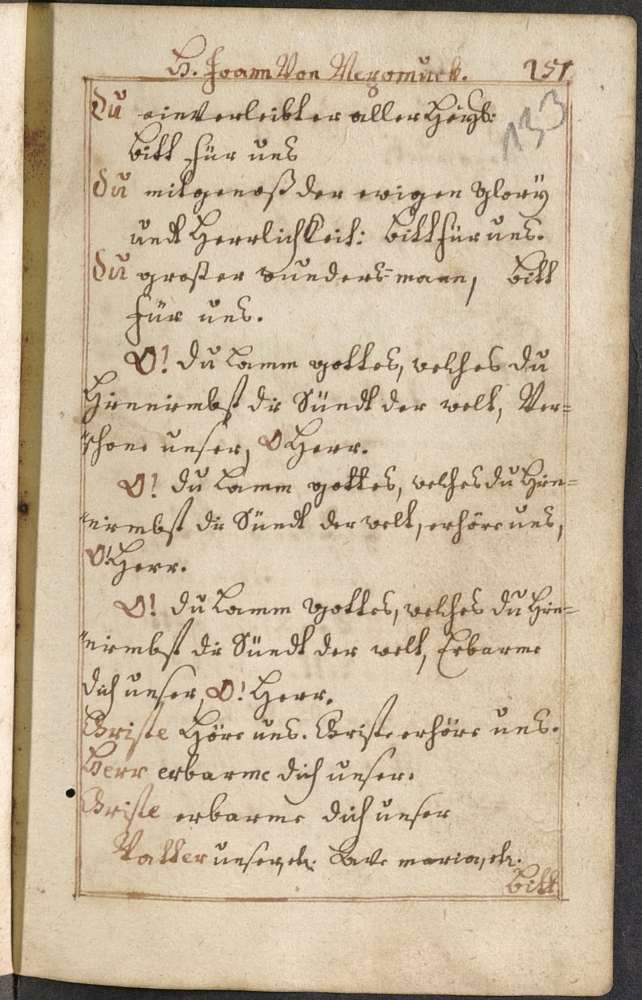 H. Joann Von Nepomuck. 151
133
Du einverleibter aller Heyl:
bitt für uns
Du mitgenoß der ewigen Glory
undt Herrlichkeit: bitt für uns.
Du großer wunders-mann, bitt
für uns.
O! du Lamm gottes, welches du
Hinnimbst die Sündt der welt, Ver=
schone unser, O Herr.
O! du Lamm gottes, welches du Hin=
nimbst die Sündt der welt, erhöre uns,
O! Herr.
O! du Lamm gottes, welches du Hin=
nimbst die Sündt der welt, Erbarme
dich unser, O! Herr.
Christe Höre uns. Christe erhöre uns.
Herr erbarme dich unser.
Christe erbarme dich unser
Vatter unser, etc. Ave maria, etc.
Bitt